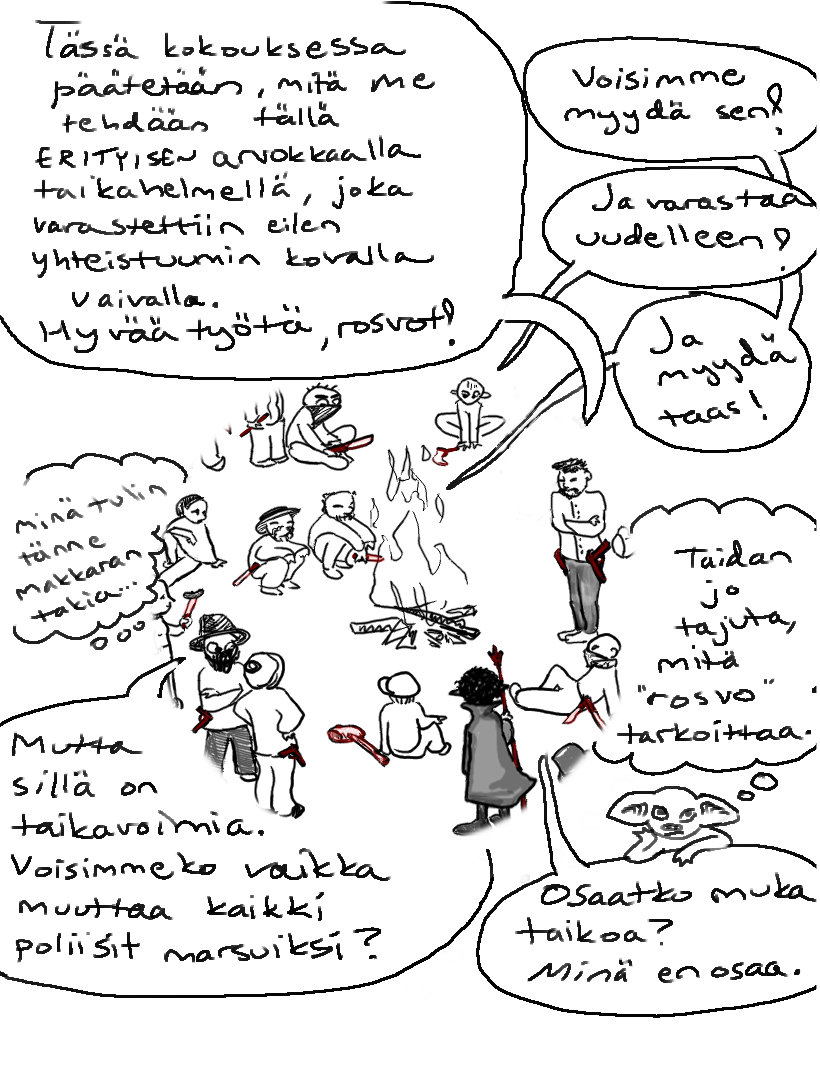 Tässä kokouksessa
päätetään, mitä me
tehdään tällä
ERITYISEN arvokkaalla
taikahelmellä, joka
varastettiin eilen
yhteistuumin kovalla
vaivalla.
Hyvää työtä, rosvot!
Voisimme
myydä sen!
Ja varastaa
uudelleen!
Ja
myydä
taas!
minä tulin
tänne
makkaran
takia...
Taidan
jo
tajuta,
mitä
"rosvo"
tarkoittaa.
Mutta
sillä on
taikavoimia.
Voisimmeko vaikka
muuttaa kaikki
poliisit marsuiksi?
Osaatko muka
taikoa?
Minä en osaa.